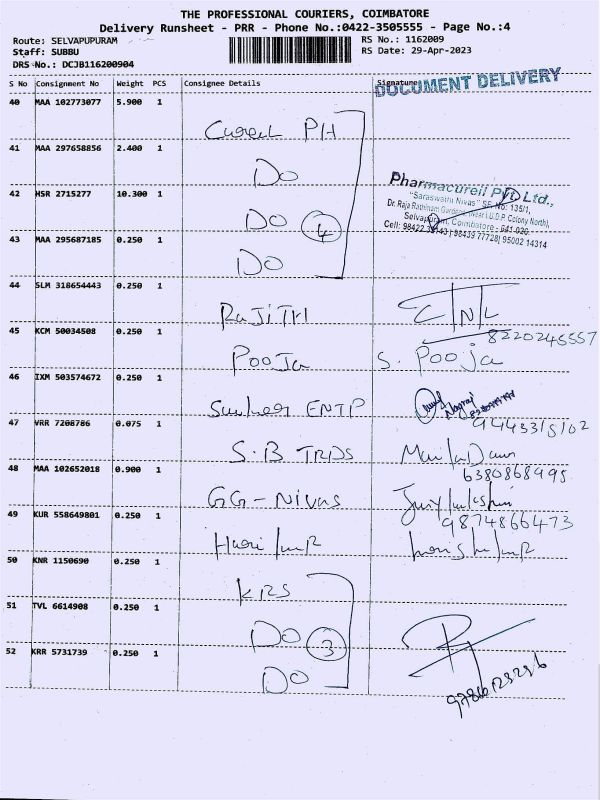 THE PROFESSIONAL COURIERS, COIMBATORE
Delivery Runsheet - PRR - Phone No.:0422-3505555 - Page No.:4
Route: SELVAPUPURAM RS No.: 1162009
Staff: SUBBU RS Date: 29-Apr-2023
DRS No.: DCJB116200904
S No Consignment No Weight PCS Consignee Details Signature
DOCUMENT DELIVERY
40 MAA 102773077 5.900 1 PH
41 MAA 297658856 2.400 1 Do
Pharmacureil Pvt Ltd.,
"Saraswathi Nivas" SF. No: 135/1,
Dr. Raja Rathinam Gardens, (Near I.U.D.P. Colony North),
Selvapuram, Coimbatore - 641 026.
42 HSR 2715277 10.300 1 Do 4
43 MAA 295687185 0.250 1 Do
44 SLM 318654443 0.250 1 RaJiTH
8220245557
45 KCM 50034508 0.250 1 PooJa S. Pooja
46 IXM 503574672 0.250 1 ENTP Nagraj
47 VRR 7208786 0.075 1 S.B TRDS
48 MAA 102652018 0.900 1 GG-Nivas
6380868995
49 KUR 558649801 0.250 1
9874866473
50 KNR 1150690 0.250 1 KRS
51 TVL 6614908 0.250 1 Do 3
52 KRR 5731739 0.250 1 Do